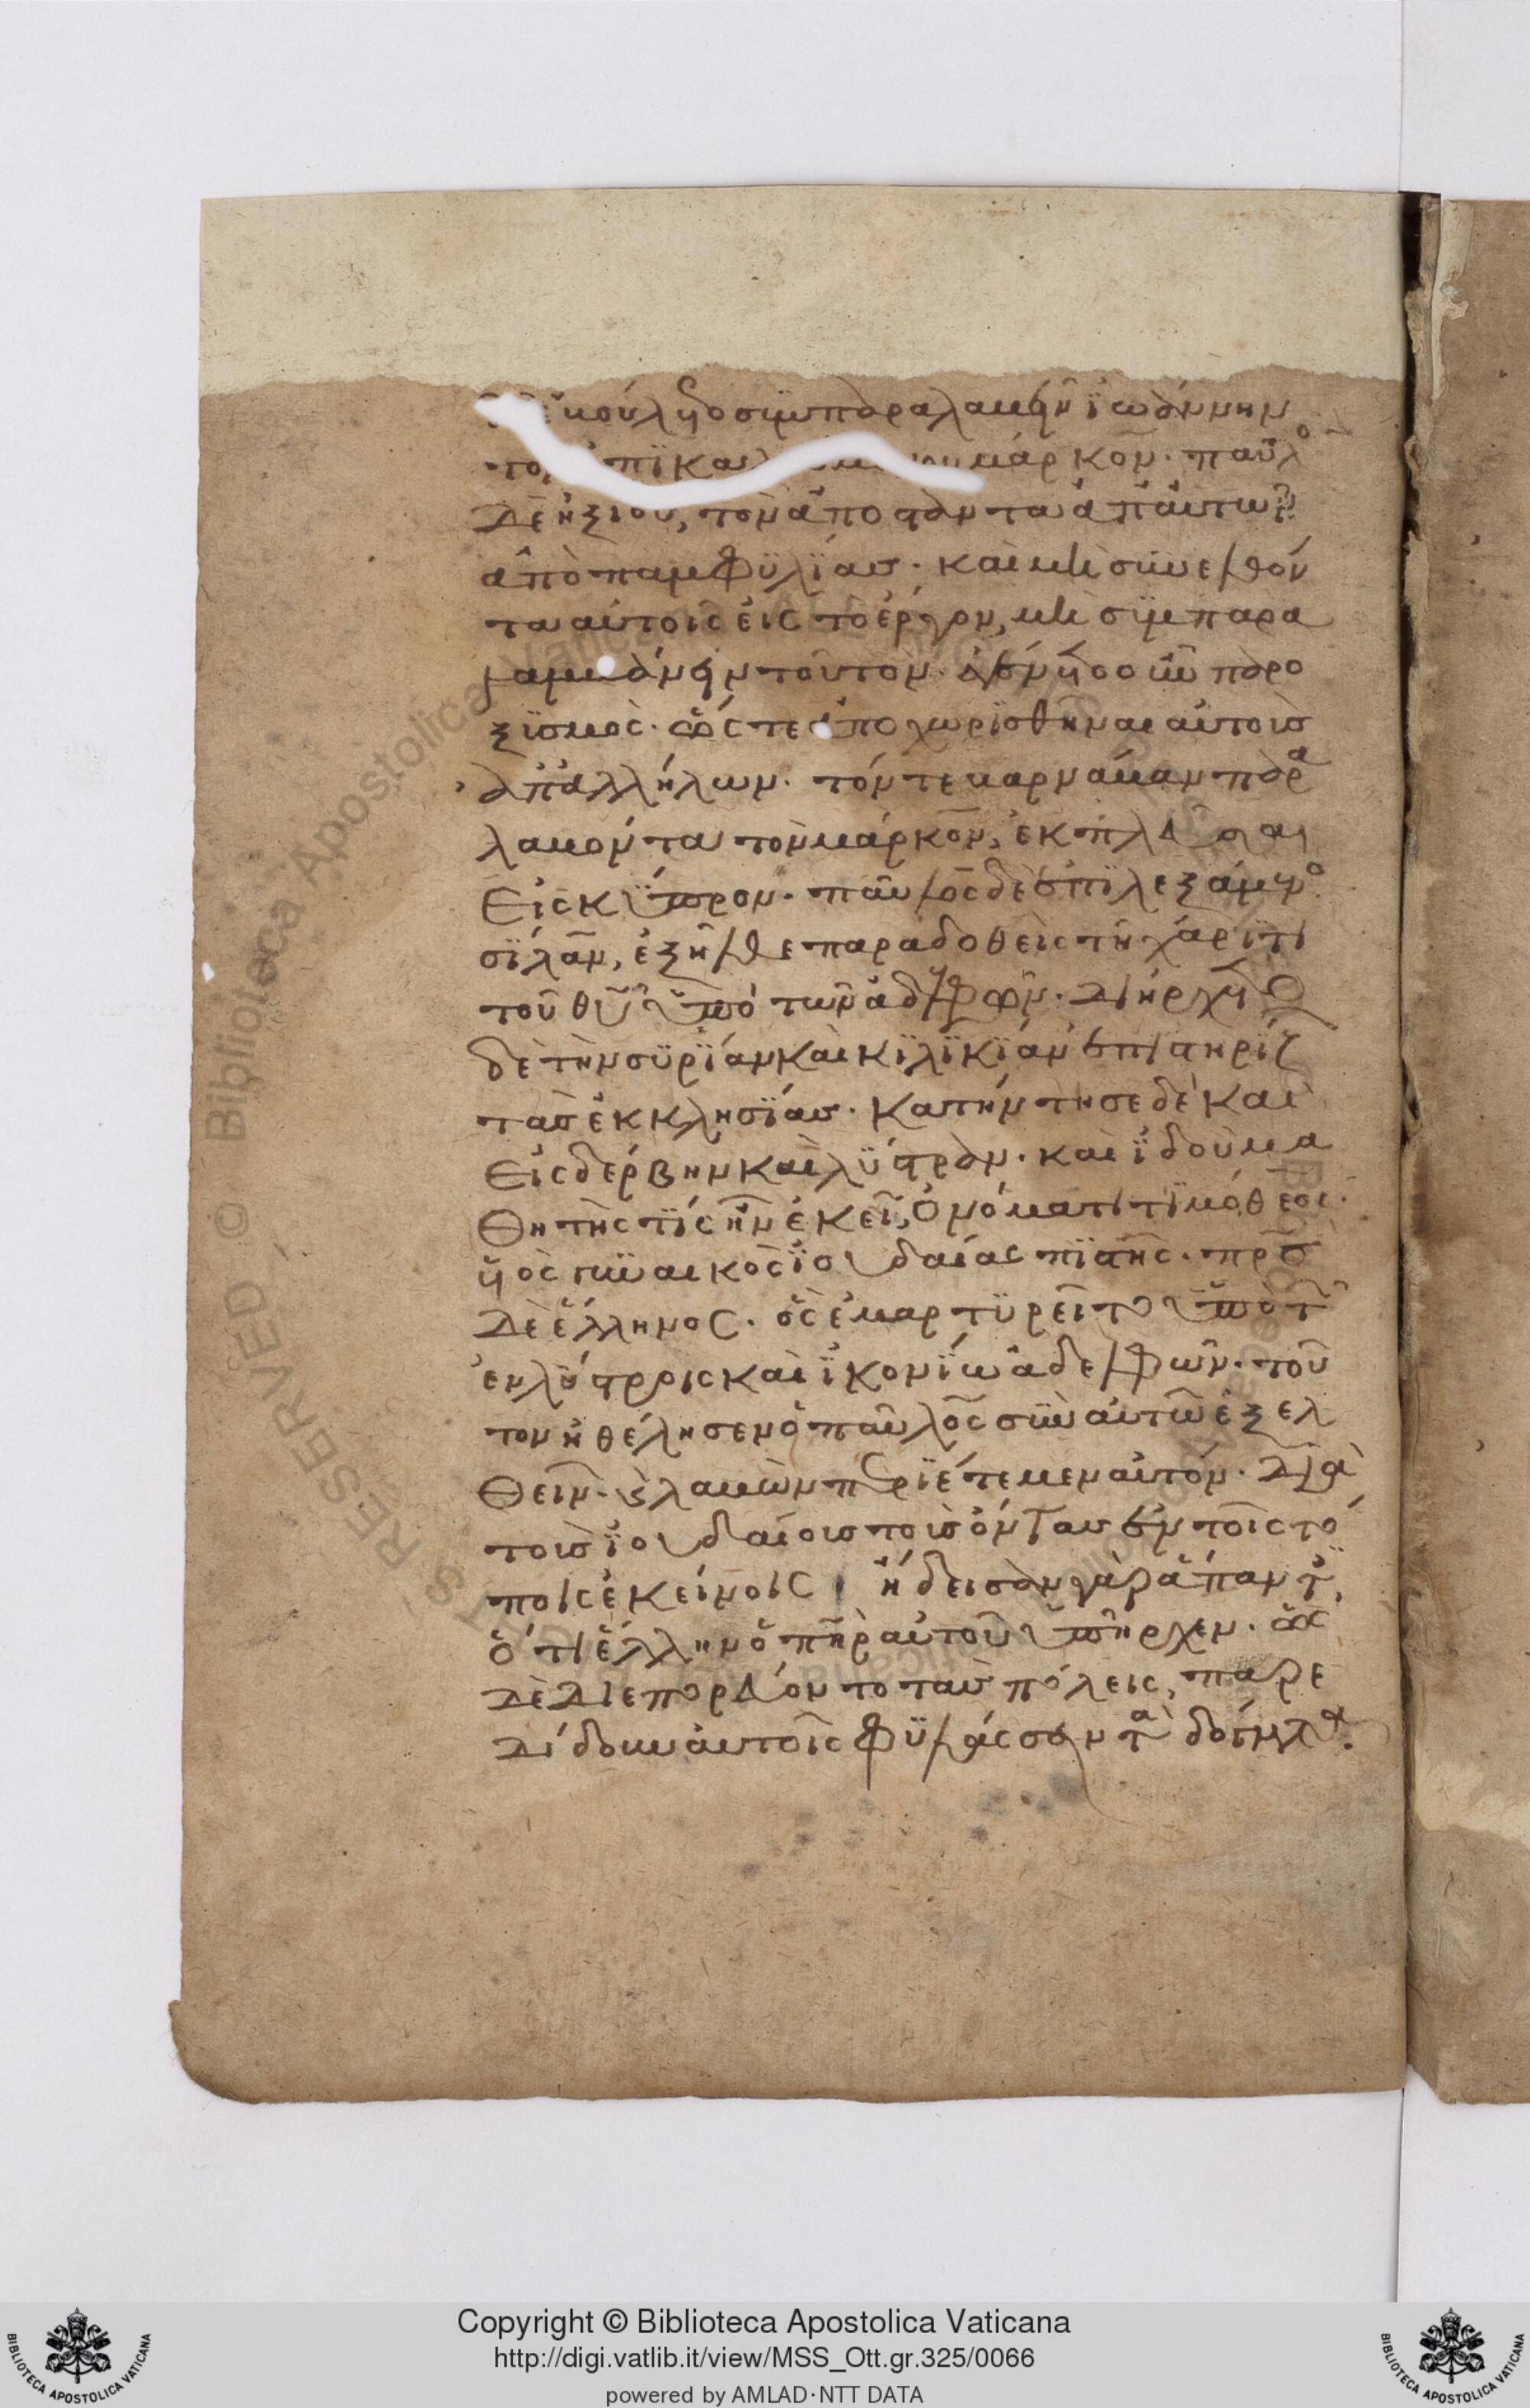 ἐβούλετο συμπαραλαβεῖν ἰωάννην
τὸν ἐπικαλ μάρκον. παῦλο
δὲ ἠξίου, τὸν ἀποστάντα ἀπ' αὐτῶν
ἀπὸ παμφυλίας. καὶ μὴ συνελθόν
τα αὐτοῖς εἰς τὸ ἔργον, μὴ συμπαρα
λαμβάνειν τοῦτον. ἐγένετο οὖν παρο
ξϋσμὸς. ὥς τε ἀποχωρϊσθῆναι αὐτοὺς
ἀπ' ἀλλήλων. τόν τε βαρνάβαν παρα
λαβόντα τὸν μάρκον, ἐκπλεῦσαι
Εἰς κύπρον. παῦλος δὲ ἐπϊλεξάμενο
σίλαν, ἐξῆλθε παραδοθεὶς τῆ χάριτι
τοῦ θυ ὑπὸ τῶν ἀδελφῶν. διήρχετο
δὲ τὴν συρίαν καὶ κιλικίαν ἐπιστηρίζ
τὰς ἐκκλησίας. κατήντησε δὲ καὶ
Εἰς δέρβην καὶ λύστραν. καὶ ἰδοὺ μα
θητής τίς ἦν ἐκεῖ, ὀνόματι τιμόθεος.
υἱὸς γυναικὸς ἰουδαίας πιστῆς. πρς
δὲ ἕλληνος. ὃς ἐμαρτυρεῖτο ὑπὸ τῶ
ἐν λύστροις καὶ ἰκονίω ἀδελφῶν. τοῦ
τον ἠθέλησεν ὁ παῦλος σὺν αὐτῶ ἐξελ
θεῖν. καὶ λαβὼν περιέτεμεν αὐτόν. διὰ
τοὺς ἰουδαίους τοὺς ὄντας ἐν τοῖς τό
ποις ἐκείνοις ἤδεισαν γὰρ ἅπαντ
ὅτι ἕλλην ὁ πηρ αὐτοῦ ὑπῆρχεν. ὡς
δὲ διεπορεύοντο τὰς πόλεις, παρε
δίδουν αὐτοῖς φυλάσσειν τὰ δόγματα.
Copyright © Biblioteca Apostolica Vaticana
http://digi.vatlib.it/view/MSS_Ott.gr.325/0066
powered by AMLAD·NTT DATA